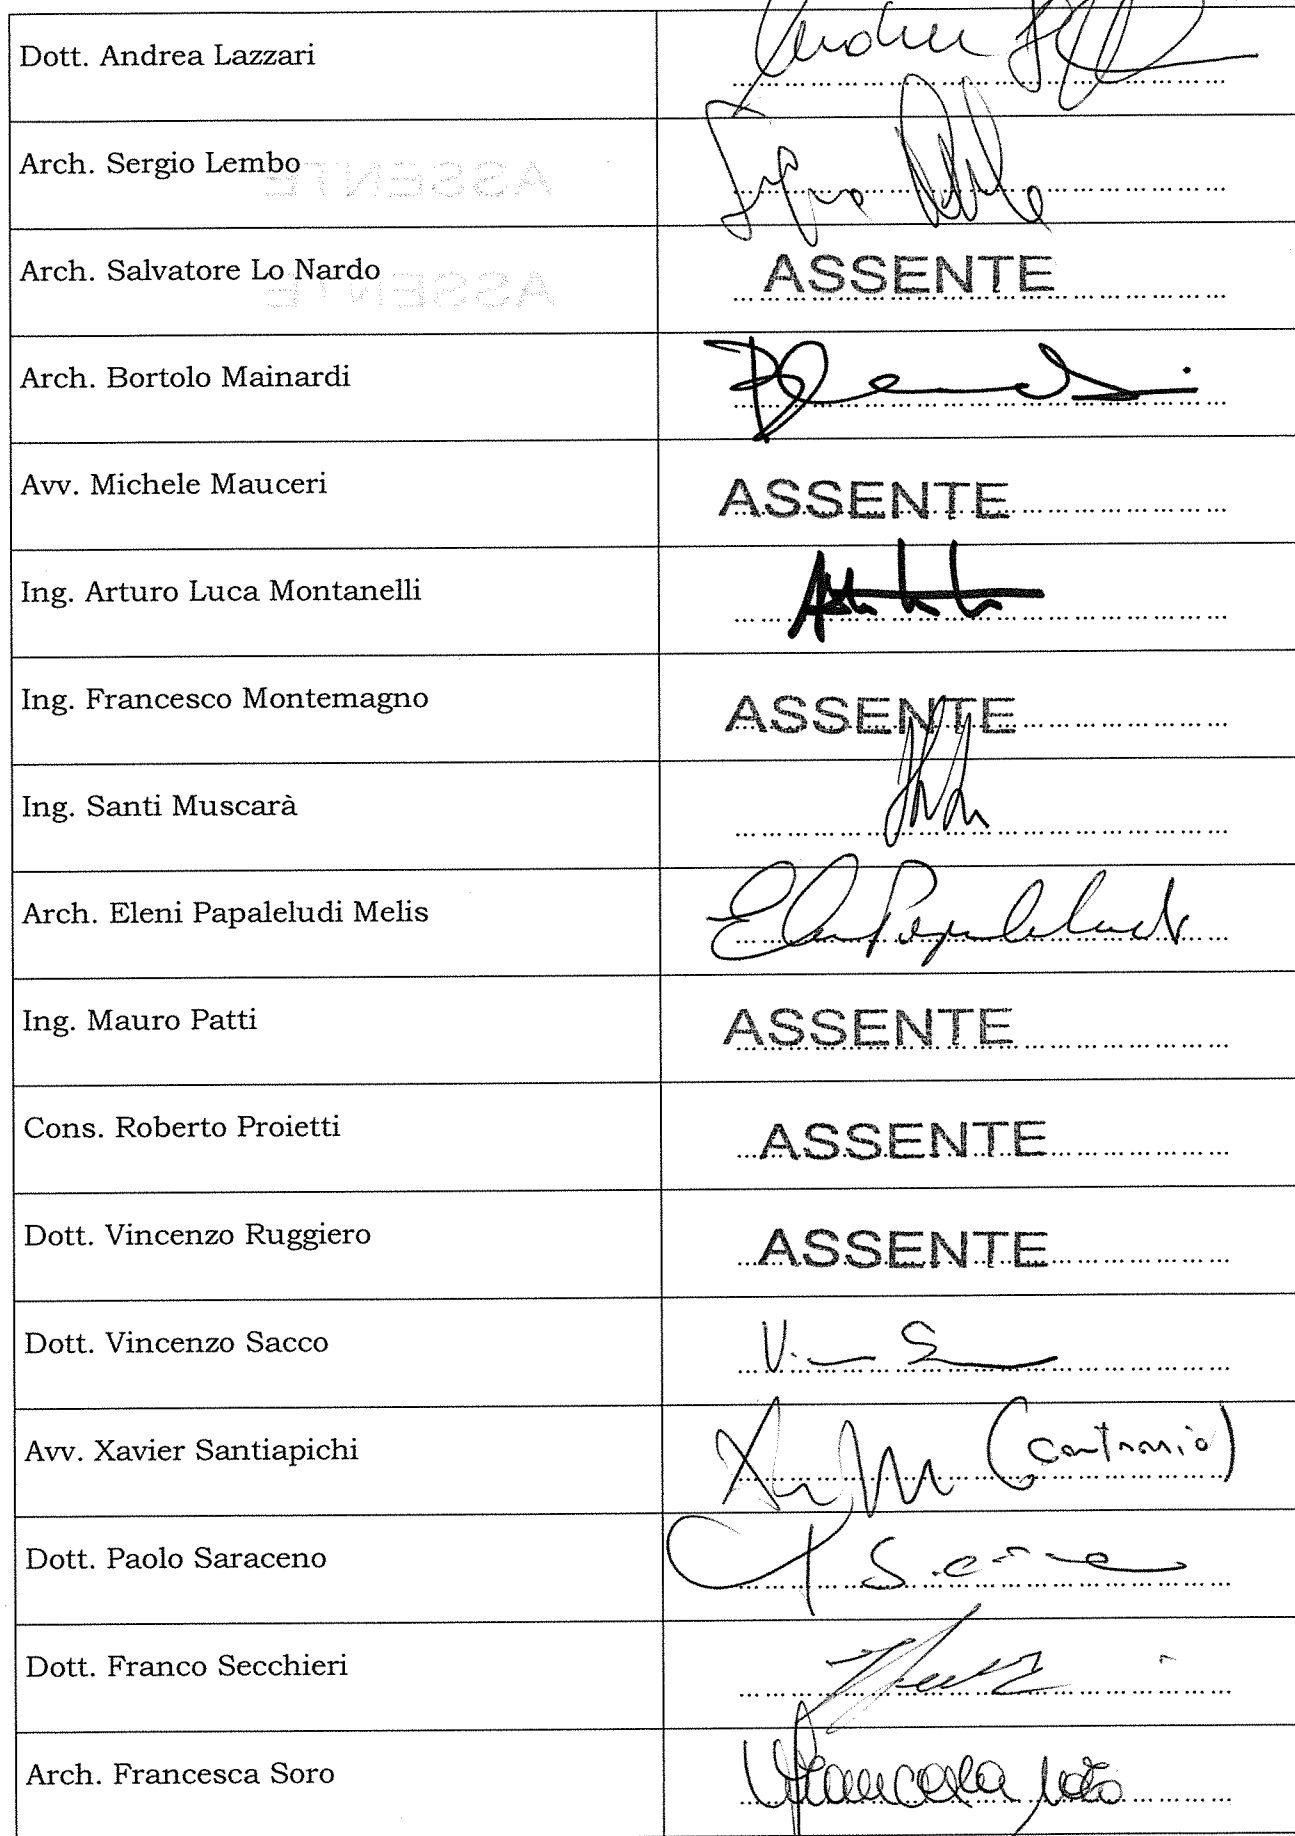 Dott. Andrea Lazzari
Arch. Sergio Lembo
Arch. Salvatore Lo Nardo ASSENTE
Arch. Bortolo Mainardi
Avv. Michele Mauceri ASSENTE
Ing. Arturo Luca Montanelli
Ing. Francesco Montemagno ASSENTE
Ing. Santi Muscarà
Arch. Eleni Papaleludi Melis
Ing. Mauro Patti ASSENTE
Cons. Roberto Proietti ASSENTE
Dott. Vincenzo Ruggiero ASSENTE
Dott. Vincenzo Sacco
Avv. Xavier Santiapichi (contrario)
Dott. Paolo Saraceno
Dott. Franco Secchieri
Arch. Francesca Soro Francesca Soro